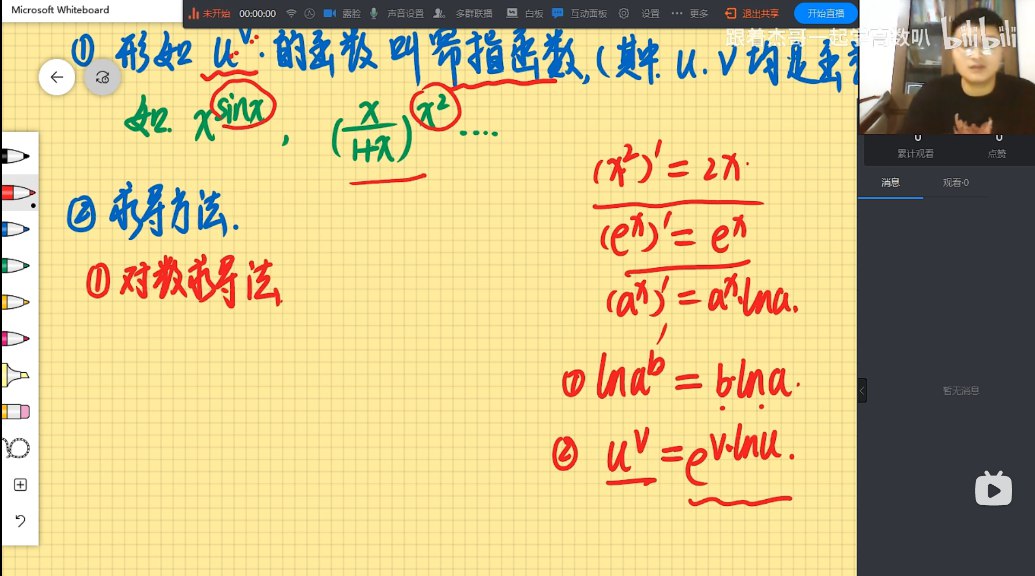 Microsoft Whiteboard
未开始 00:00:00 露脸 声音设置 多群联播 白板 互动面板 设置 更多 退出共享 开始直播
跟着杰哥一起学高数叭 bilibili
① 形如 u^v 的函数 叫 幂指函数, (其中 u. v 均是函
如. x^sinx , (x/(1+x))^x² ....
② 求导方法.
① 对数求导法
(x²)' = 2x.
(e^x)' = e^x
(a^x)' = a^x·lna.
① lna^b = b·lna.
② u^v = e^v·lnu.
0 0
累计观看 点赞
消息 观看·0
暂无消息